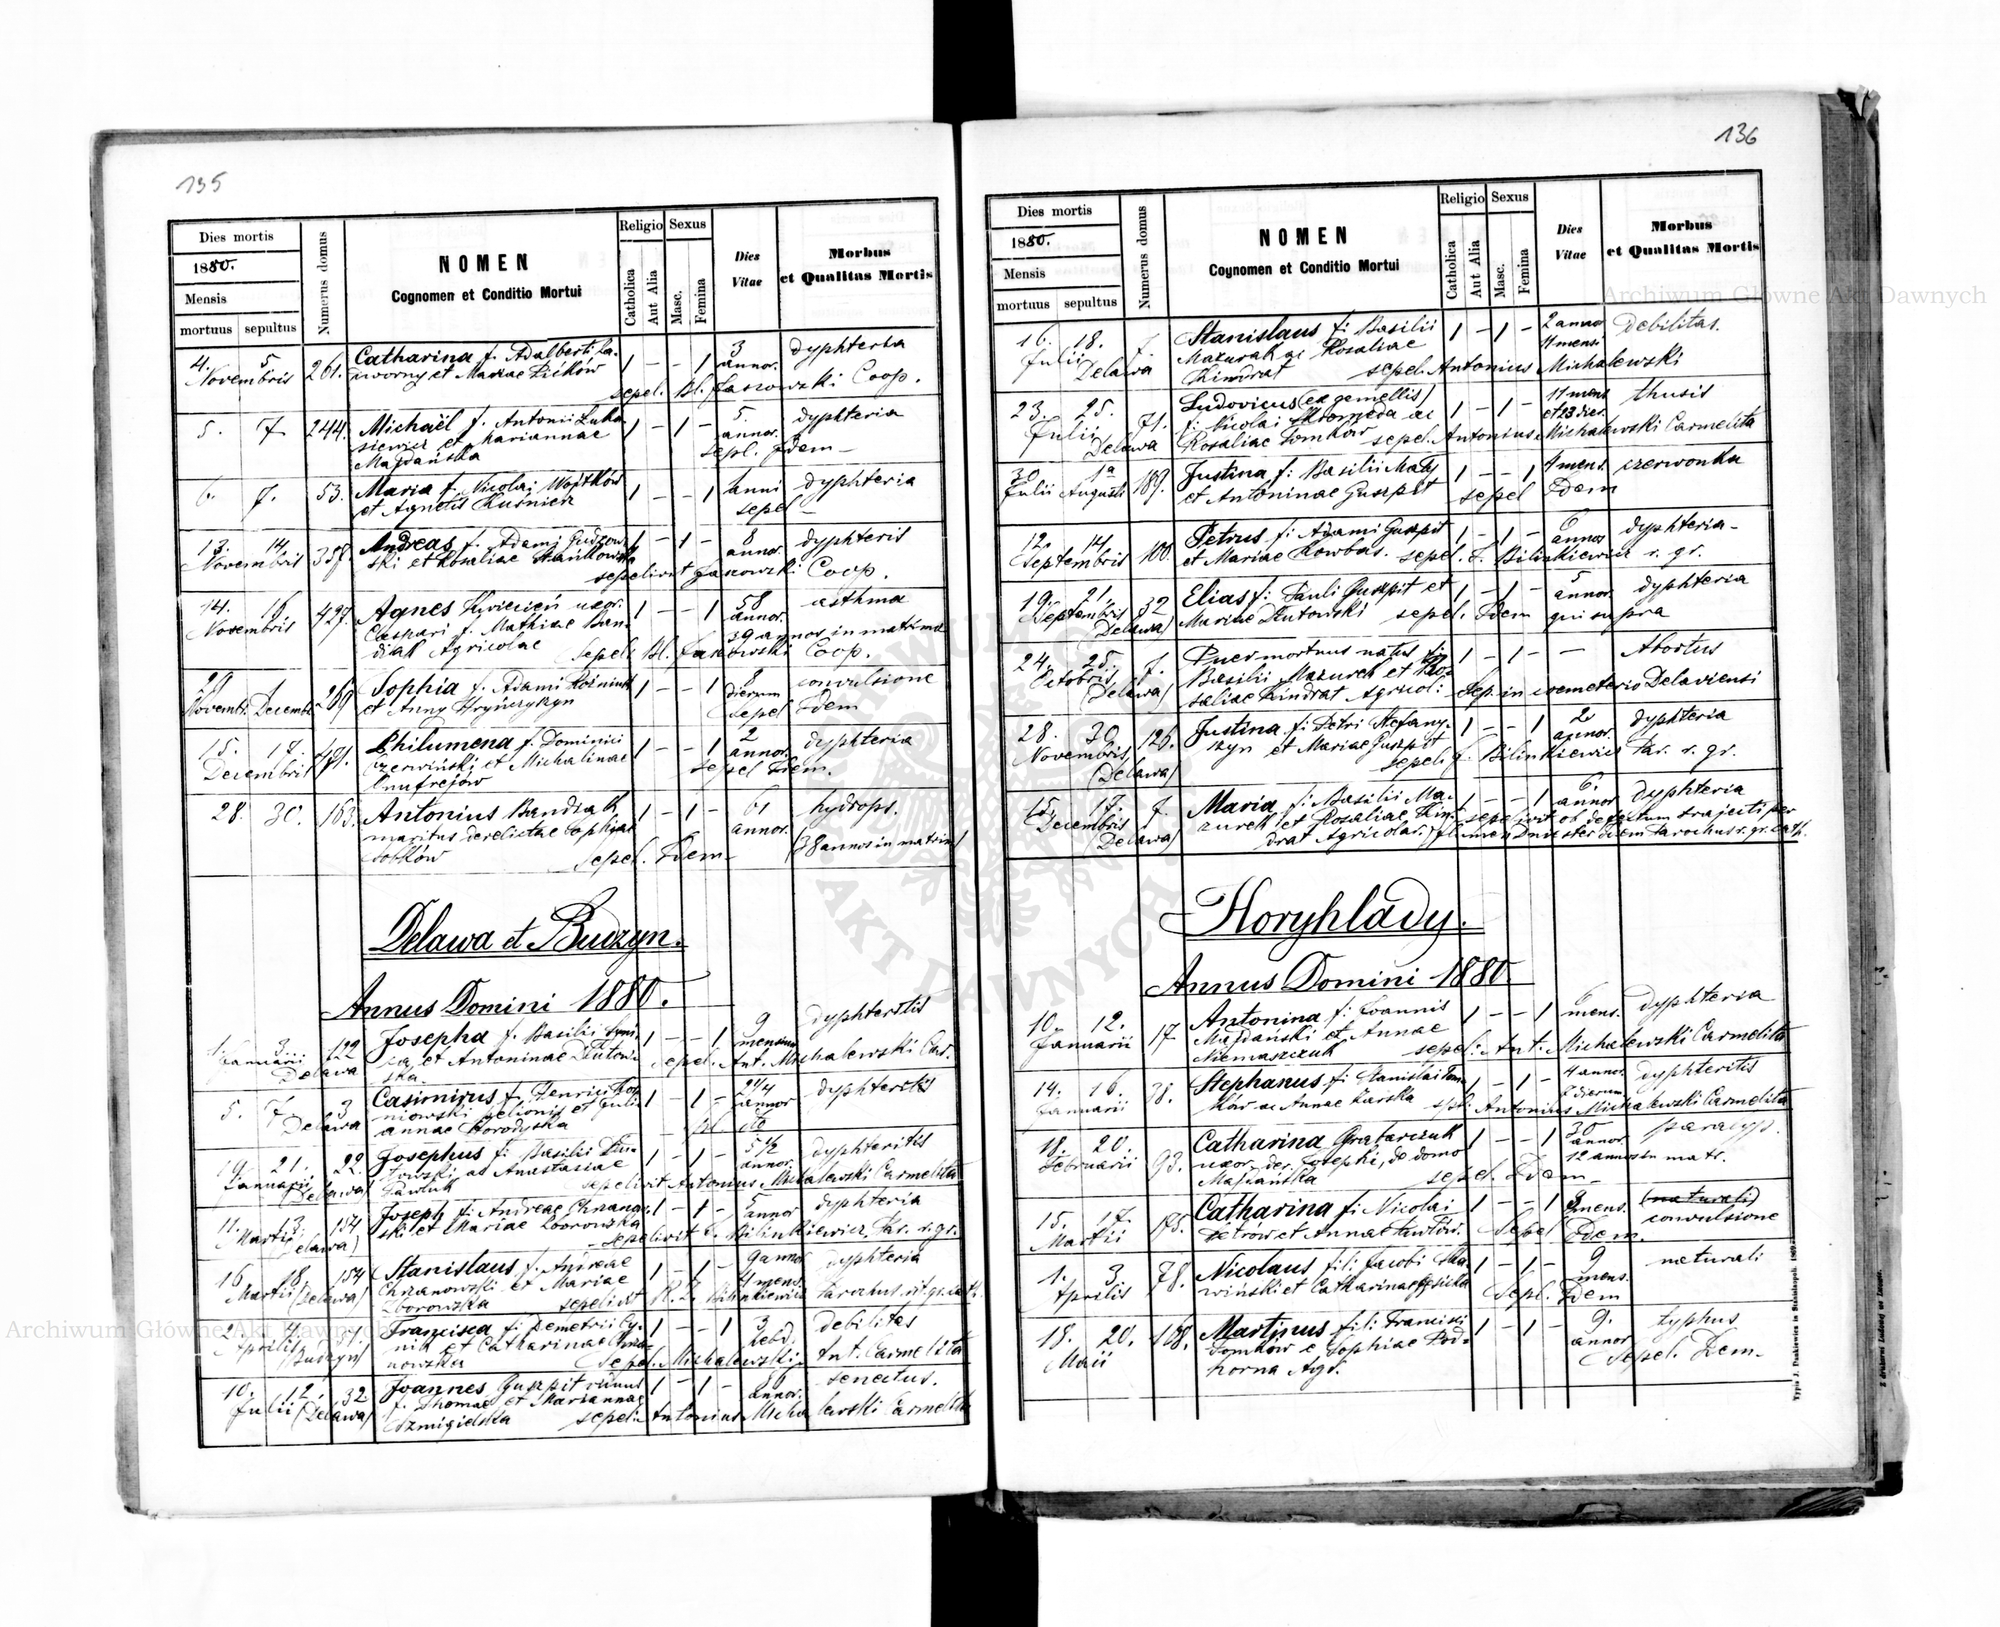 135
Dies mortis
1880.
Mensis
mortuus sepultus
Numerus domus
NOMEN
Cognomen et Conditio Mortui
Religio
Catholica
Aut Alia
Sexus
Masc.
Femina
Dies Vitae
Morbus
et Qualitas Mortis
4. 5 Novembris 261. Catharina f. Adalberti Ja- 1 – – 1 3 annor. dyphteria
worny et Mariae
sepel. Bl. Jaszowski Coop.
5. 7 244. Michaël f. Antonii Luka 1 – 1 – 5. annor. dyphteria
siewicz et Mariannae
Majdańska sepl. Idem –
6. 7. 53. Maria f. Nicolai Wojtków 1 – – 1 anni dyphteria
et Agnetis Kuśnierz sepel –
13. 14 Novembris 358. Andreas f. Adami Gudzow 1 – 1 – 8 annor. dyphteris
ski et Rosaliae Stańkowska
sepelivit Jaszowski Coop.
14. 16 Novembris 427. Agnes Kwiecień uxor. 1 – – 1 58 annor. asthma
Caspari f. Mathiae Ban- 39 annos in matrimo
diak Agricolae Sepeli Bl. Jaszowski Coop.
29 1 Novemb. Decemb. 269 Sophia f. Adami Koźmiuk 1 – – 1 8 dierum convulsione
et Anny Hrynczyszyn Sepel Idem
15. 17. Decembris 491. Philumena f. Dominici 1 – – 1 2 annor. dyphteria
Czerwiński et Michalinae sepel Idem.
Onufrejów
28. 30. 163. Antonius Bandiak 1 – 1 – 61 annor. hydrops.
maritus derelictae Sophiae
Sotków sepel. Idem – (38 annos in matrim)
Delawa et Budzyn.
Annus Domini 1880.
1. 3 Januarii Delawa 122 Josepha f. Basilii 1 – – 1 9 mensium dyphteritis
et Antoninae Duton-
ska. sepel. Ant. Michalewski Car.
5. 7 Delawa 3 Casimirus f. Henrici 1 – 1 – 2 1/4 annor dyphteritis
niowski pelionis et Juli-
annae Horodyska
19. 21. Januarii Delawa) 22. Josephus f. Basilii Du- 1 – 1 – 5 1/2 annor. dyphteritis
towski ac Anastasiae
Pawluk sepelivit Antonius Michalewski Carmelita
11. 13. Martii Delawa) 154 Joseph f. Andreae Chrzanow- 1 – 1 – 5 annor dyphteria
ski et Mariae Zborowska
sepelivit L. Bilinkiewicz, Par. r. gr.
16 18 Martii (Delawa) 154 Stanislaus f. Andreae 1 – 1 – 9 annor 4 mens. dyphteria
Chrzanowski et Mariae
Zborowska sepelivit Bilinkiewicz Parochus rit. gr. cath.
2 4. Aprilis (Budzyn) 37. Francisca f. Demetrii Cy- 1 – – 1 3 hebd. debilitas
nik et Catharinae
nowska Sepel. Michalewski Ant. Carmelita
10. 12. Julii (Delawa) 32 Joannes Guszpit viduus 1 – 1 – annor. senectus.
f. Thomae et Mariannae
Szmigielska sepeli Antonius Michalewski Carmelita
136
Dies mortis
1880.
Mensis
mortuus sepultus
Numerus domus
NOMEN
Cognomen et Conditio Mortui
Religio
Catholica
Aut Alia
Sexus
Masc.
Femina
Dies Vitae
Morbus
et Qualitas Mortis
16. 18. Julii Delawa 7. Stanislaus f. Basilii 1 – 1 – 2 annor 11 mensi Debilitas.
Mazurak ac Rosaliae
Kindrat sepel. Antonius Michalewski
23. 25. Julii Delawa 71. Ludovicus (ex gemellis) 1 – 1 – 11 mens et 23 dier. thusis
f: Nicolai Skomroda ac
Rosaliae Tomków sepel. Antonius Michalewski Carmelita
30 1a Julii Augusti 189. Justina f: Basilii Maty 1 – – 1 4 mens. czerwonka
et Antoninae Guszpit sepel Idem
12. 14. Septembris 100. Petrus f: Adami Guszpit 1 – 1 – 6 annor dyphteria –
et Mariae Kowbas. sepel. L. Bilinkiewicz r. gr.
19. 21. Septembris Delawa) 32 Elias f: Pauli Guszpit et 1 – 1 – 5 annor dyphteria
Mariae Dutowski sepel. Idem qui supra
24. 25. Octobris (Delawa) 7. Puer mortuus natus 1 – 1 – – Abortus
Basilii Mazurek et Ro-
saliae Kindrat Agricol: Sep. in coemeterio Delaviensi
28. 30. Novembris (Delawa) 126. Justina f: Petri Stefany- 1 – – 1 2 annor. dyphteria
szyn et Mariae Guszpit
sepeli J. Bilinkiewicz Par. r. gr.
15. 17. Decembris (Delawa) 7. Maria f: Basilii Ma- 1 – – 1 6. annor dyphteria
zurek et Rosaliae Kin- sepelivit ob defectum trajecti per
drat Agricolar.) flumen Dniester idem Parochus r. gr. cath.
Horyhlady.
Annus Domini 1880.
10. 12. Januarii 17 Antonina f: Joannis 1 – – 1 6 mens. dyphteria
Majdański et Annae
Niemaszczuk sepel: Ant. Michalewski Carmelita
14. 16. Januarii 38. Stephanus f: Stanislai Tom- 1 – 1 – 4 annor. 2 dierum dyphteritis
ków ac Annae Karska sepl. Antonius Michalewski Carmelita
18. 20. Februarii 93. Catharina Grabarczuk 1 – – 1 30 annor. paralys.
uxor der. Josephi, de domo 12 annos in matr.
Majdańska sepel. Idem –
15. 17. Martii 175. Catharina f: Nicolai 1 – – 1 mens. (naturali)
Petrów et Annae Pawłów. Sepel Idem. convulsione
1. 3 Aprilis 78. Nicolaus fil: Jacobi Ska- 1 – 1 – 9 mens. naturali
wiński et Catharinae Sepl. Idem
18. 20. Maii 188. Martinus fili Francisci 1 – 1 – 9. annor typhus
Tomków e Sophiae Pod-
horna Agr. Sepel. Idem –
Typis J. Dankiewicz in Stanislaopoli. 1869
Archiwum Główne Akt Dawnych
Archiwum Główne Akt Dawnych
ARCHIWUM GŁÓWNE AKT DAWNYCH